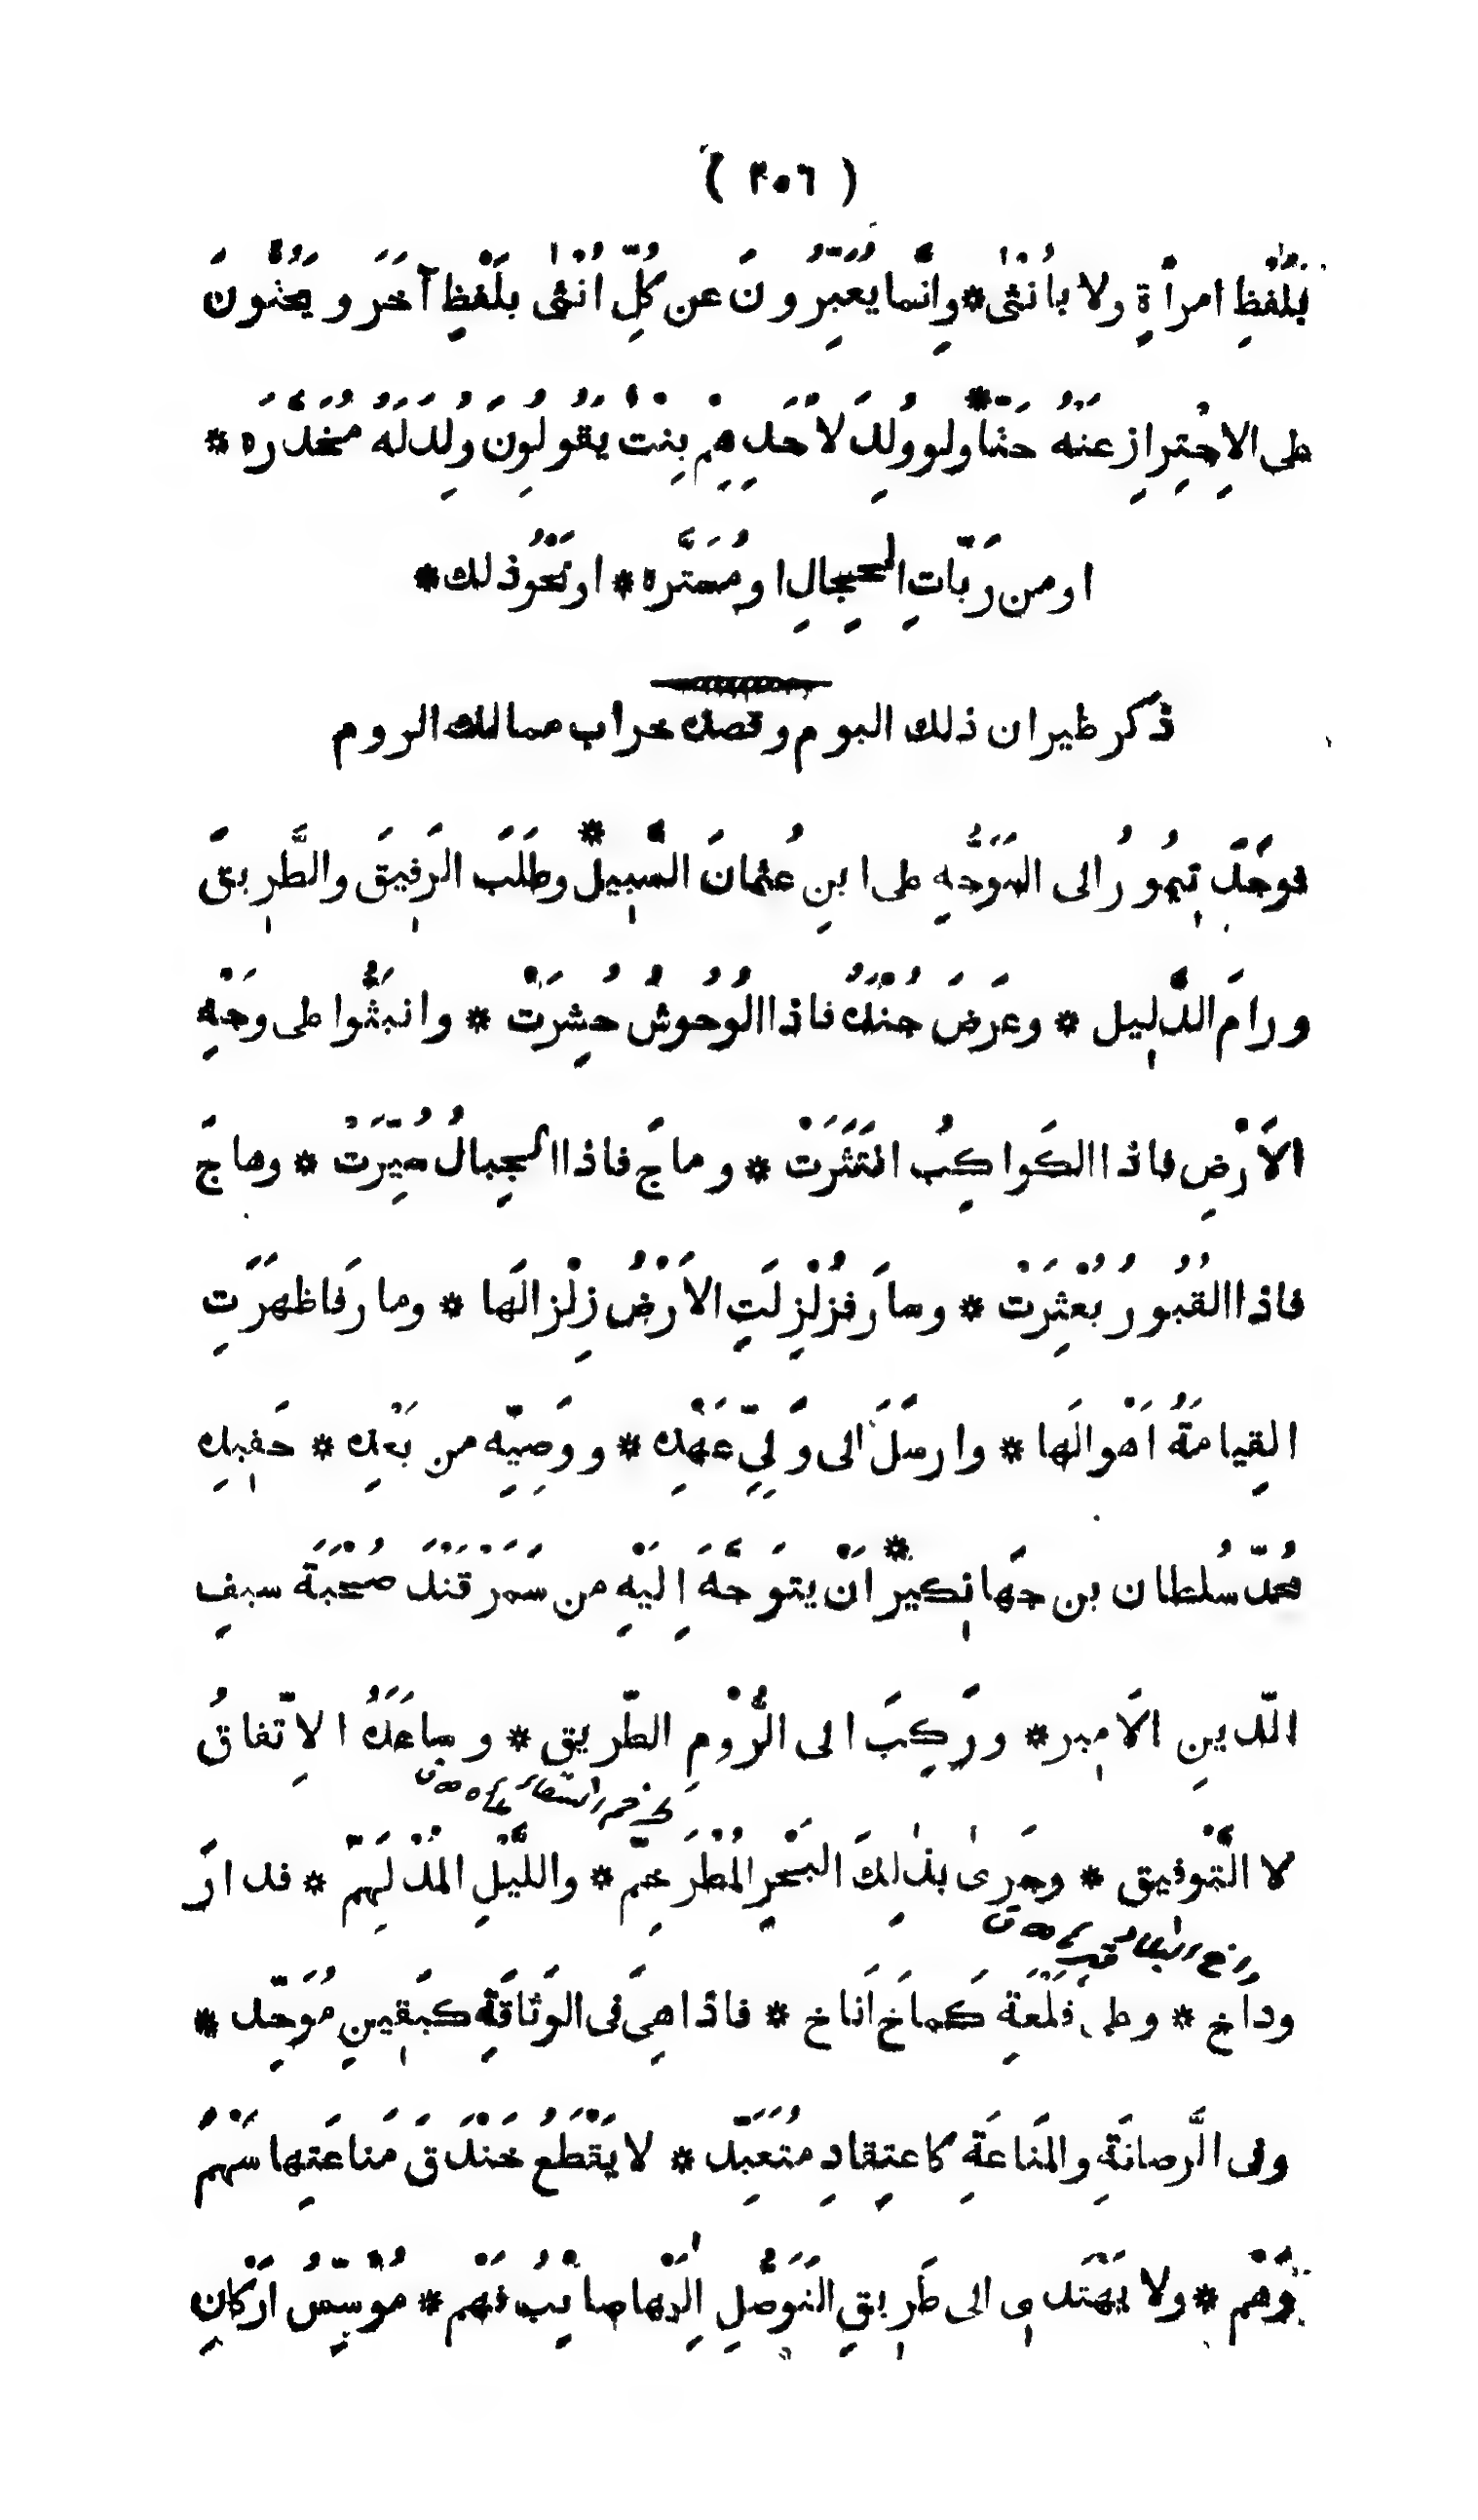 ( ٢٥٦ )
بِلَفْظِ امرأةٍ ولا بأُنْثى * وإنَّما يُعَبِّرُونَ عن كُلِّ اُنْثى بلَفْظٍ آخَرَ ويَحُثُّونَ
على الاِحْتِرازِ عنَهُ حَثّاً * ولو وُلِدَ لأحَدِهِمْ بِنْتٌ يَقُولُونَ وُلِدَ لَهُ مُخَدَّرَه *
او من رَبّاتِ الحِجالِ او مُسَتَّره * او نَحْوُ ذلك *
ذكر طيران ذلك البوم وقصده خراب ممالك الروم
فوجَّهَ تِيمُورُ الى التَّوَجُّهِ على ابنِ عُثمانَ السَّبِيلَ * وطَلَبَ الرَفِيقَ والطَّرِيقَ
ورامَ الدَّلِيل * وعَرَضَ جُنْدَهُ فاذا الوُحُوشُ حُشِرَتْ * وانبَثُّوا على وجَهِ
الاَرْضِ فاذا الكَواكِبُ انتَثَرَتْ * وماجَ فاذا الجِبالُ سُيِّرَتْ * وهاجَ
فاذا القُبُورُ بُعْثِرَتْ * وسارَ فزُلْزِلَتِ الاَرْضُ زِلْزالَها * ومارَ فاظهَرَتِ
القِيامَةُ اَهْوالَها * وارسَلَ الى وَلِيِّ عَهْدِه * ووَصِيِّه من بَعْدِه * حَفِيدِه
مُحمَّد سُلطان بن جهَانكير * اَنْ يتوَجَّهَ اِلَيْهِ من سَمَرْقَنْدَ صُحْبَةَ سيفِ
الدّينِ الاَمِير * ورَكِبَ الى الرُّومِ الطّريق * وساعَدَهُ الاِتّفاقُ
لا التَّوفيق * وجَرىٰ بذٰلِكَ البَحْرِ المُطْرَخِمّ * واللَّيْلِ المُدْلَهِمّ * فدارَ
وداخ * وعلى قَلْعَةِ كَماخَ اَناخ * فاذا هِىَ فى الوَثاقَةِ كيَقِينِ مُوَحِّد *
وفى الرَّصانَةِ والمَناعَةِ كاعتِقادِ مُتَعَبِّد * لا يَقْطَعُ خَنْدَقَ مَناعَتِها سَهْمُ
وَهْم * ولا يَهْتَدِى الى طَرِيقِ التَّوَصُّلِ اِلَيْها صائِبُ فَهْم * مُؤسِّسُ اَرْكانِ